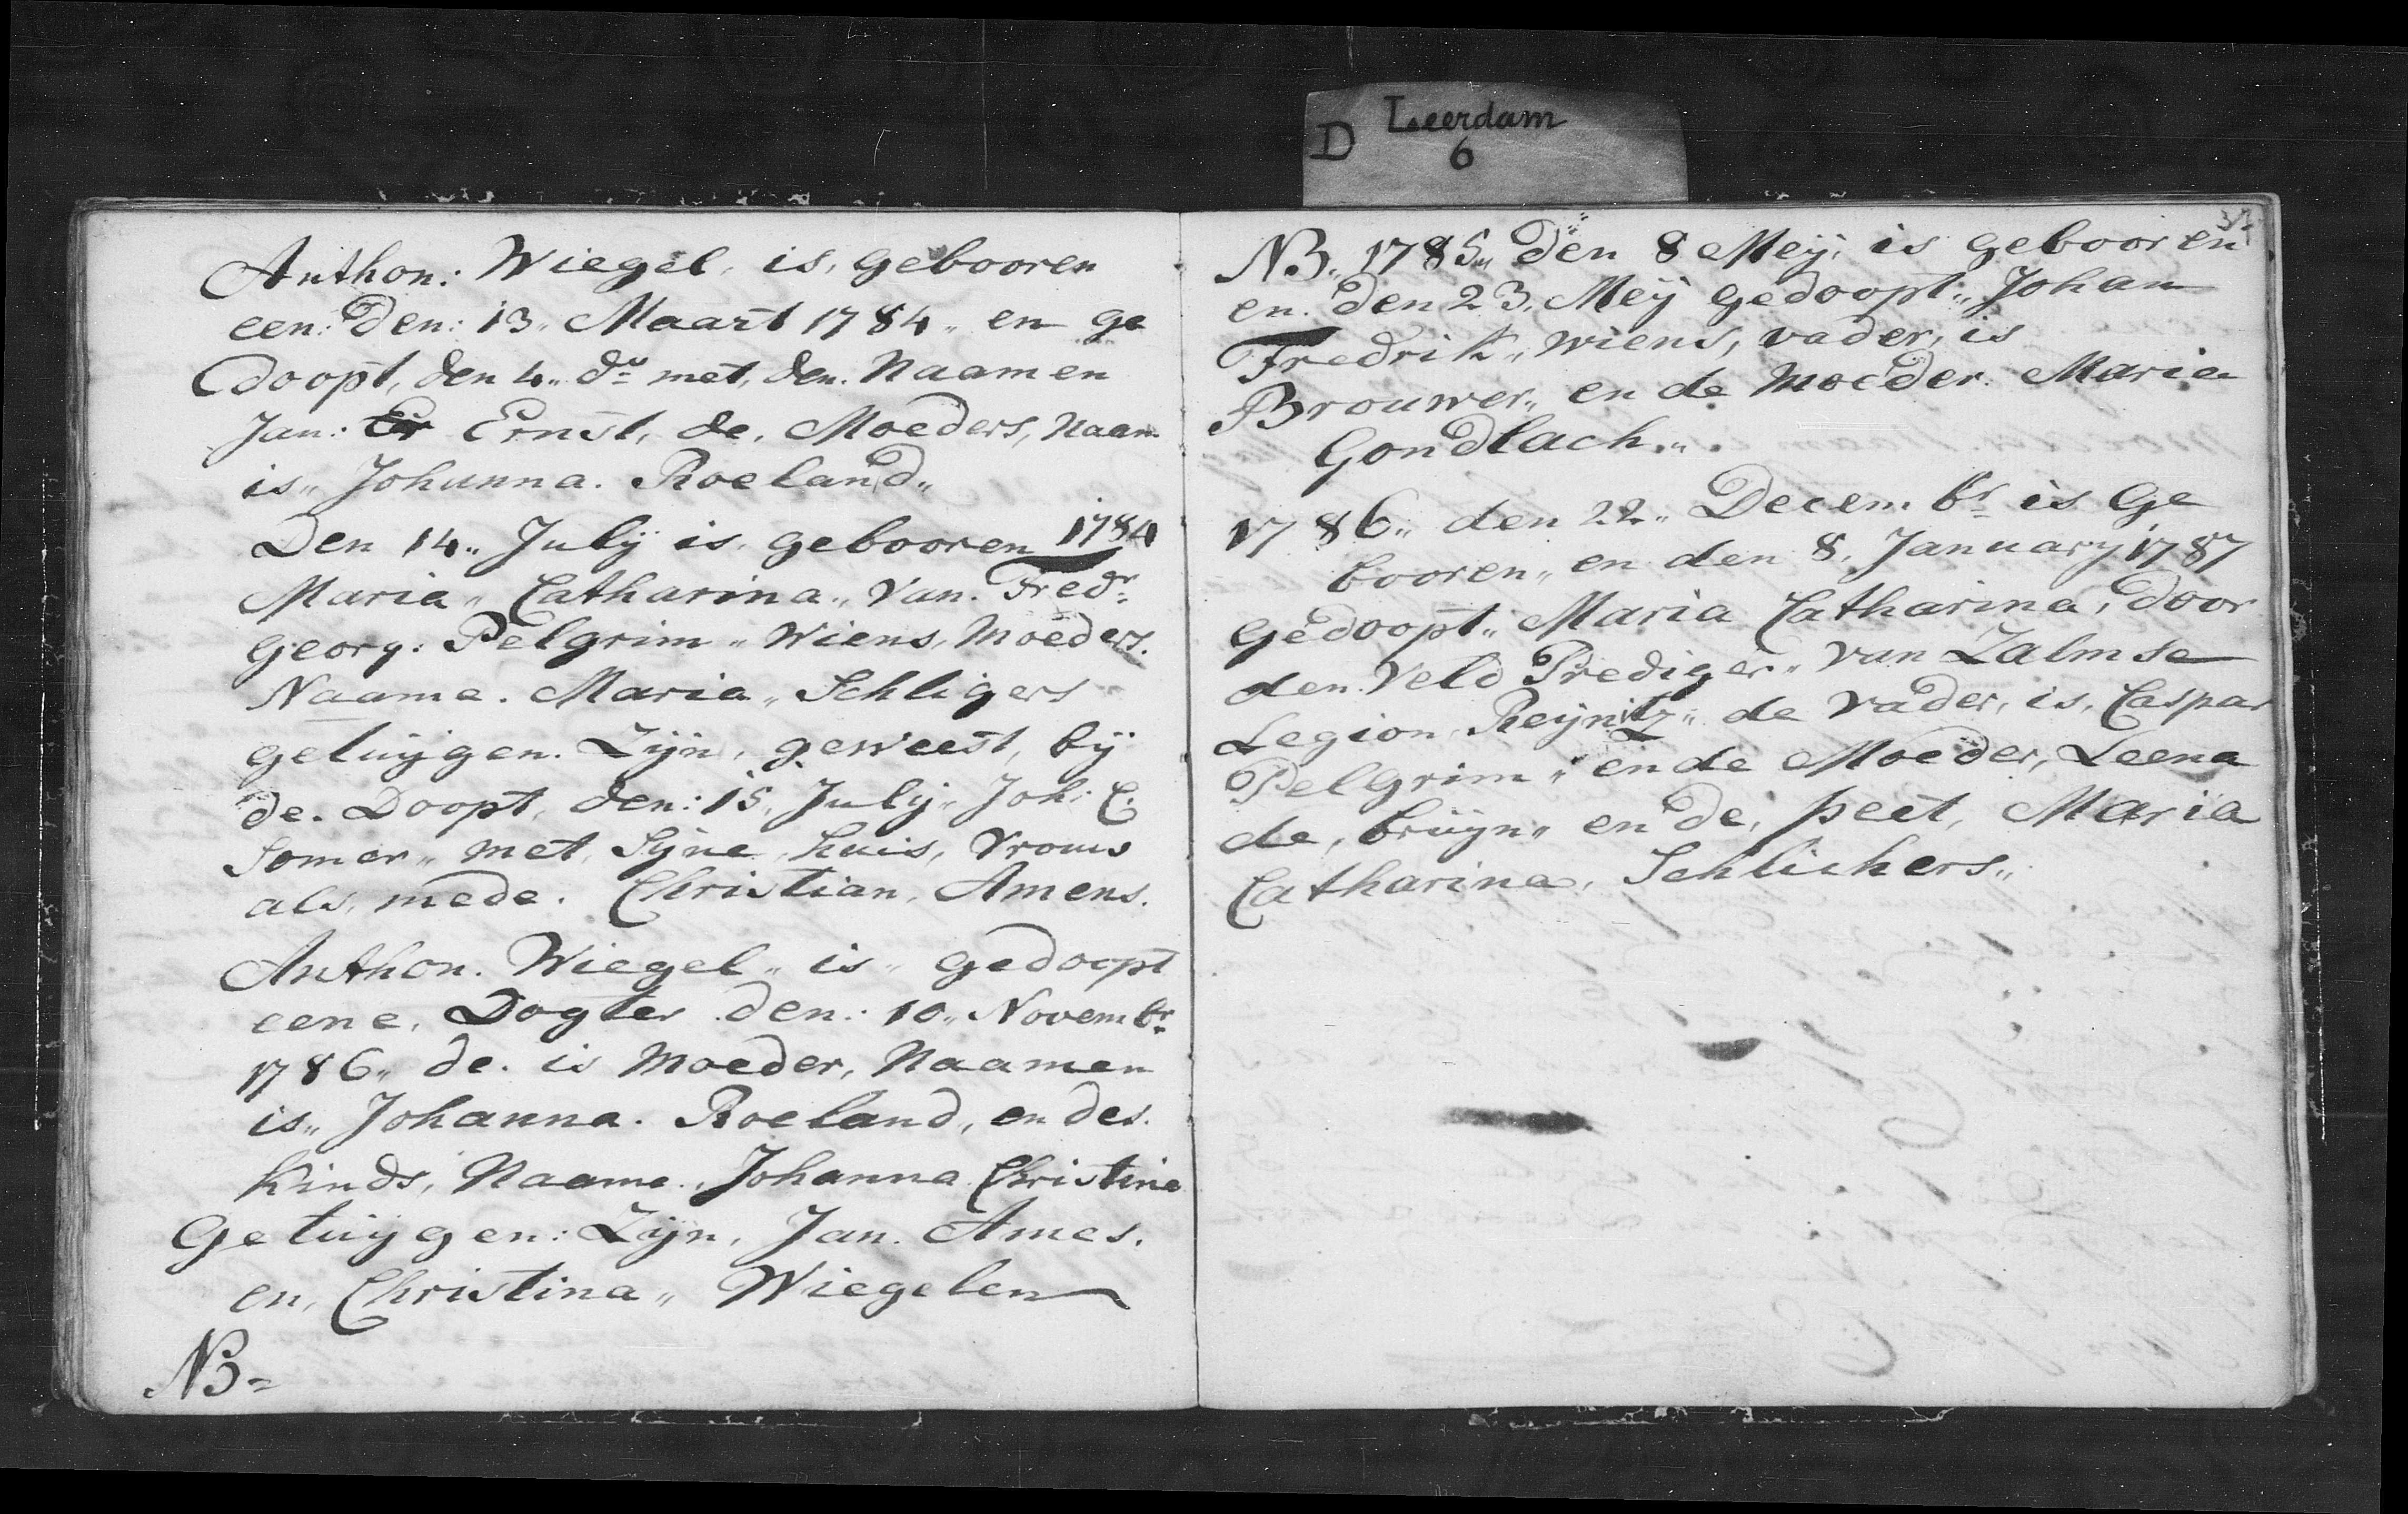 D Leerdam
6
Anthon: Wiegel, is, gebooren
een: Den: 13„ Maart 1784„ en ge
doopt, den 4„ do met, den. Naamen
Jan: Er Ernst, de, Moeders, Naam
is„ Johanna. Roeland„
Den 14„ Julij is, gebooren 1784
Maria„ Catharina„ Van. Fredr:
georg: Pelgrim„ Wiens, Moeders.
Naame. Maria„ Schligers
getuijgen. Zijn, geweest, bij
de. Doopt, den: 15, Julij„ Joh: C.
Somer„ met, Sijne, huis, Vrouw
als, mede. Christian, Amens.
Anthon. Wiegel„ is„ gedoopt
eene, Dogter den: 10„ Novembr
1786„ de. is Moeder, Naamen
is„ Johanna. Roeland, en des.
Kinds, Naame., Johanna Christina
Getuijgen: Zijn, Jan. Ames.
en, Christina„ Wiegelen
NB=
NB. 1785„ Den 8 Meij, is gebooren
en. Den 23, Meij gedoopt„ Johan
Fredrik„ wiens, vader, is
Brouwer„ en de Moeder: Maria
Gondlach„.
1786„ den 22„ Decem br is Ge
booren„ en den 8, January 1787
gedoopt„ Maria Catharina, door
den. Veld Prediger„ van Zalmse
Legion, Reijnitz„ de Vader, is, Caspar
Pelgrim„ en de Moeder, Leena
de, bruijn„ en de, peet, Maria
Catharina, Schlichers„